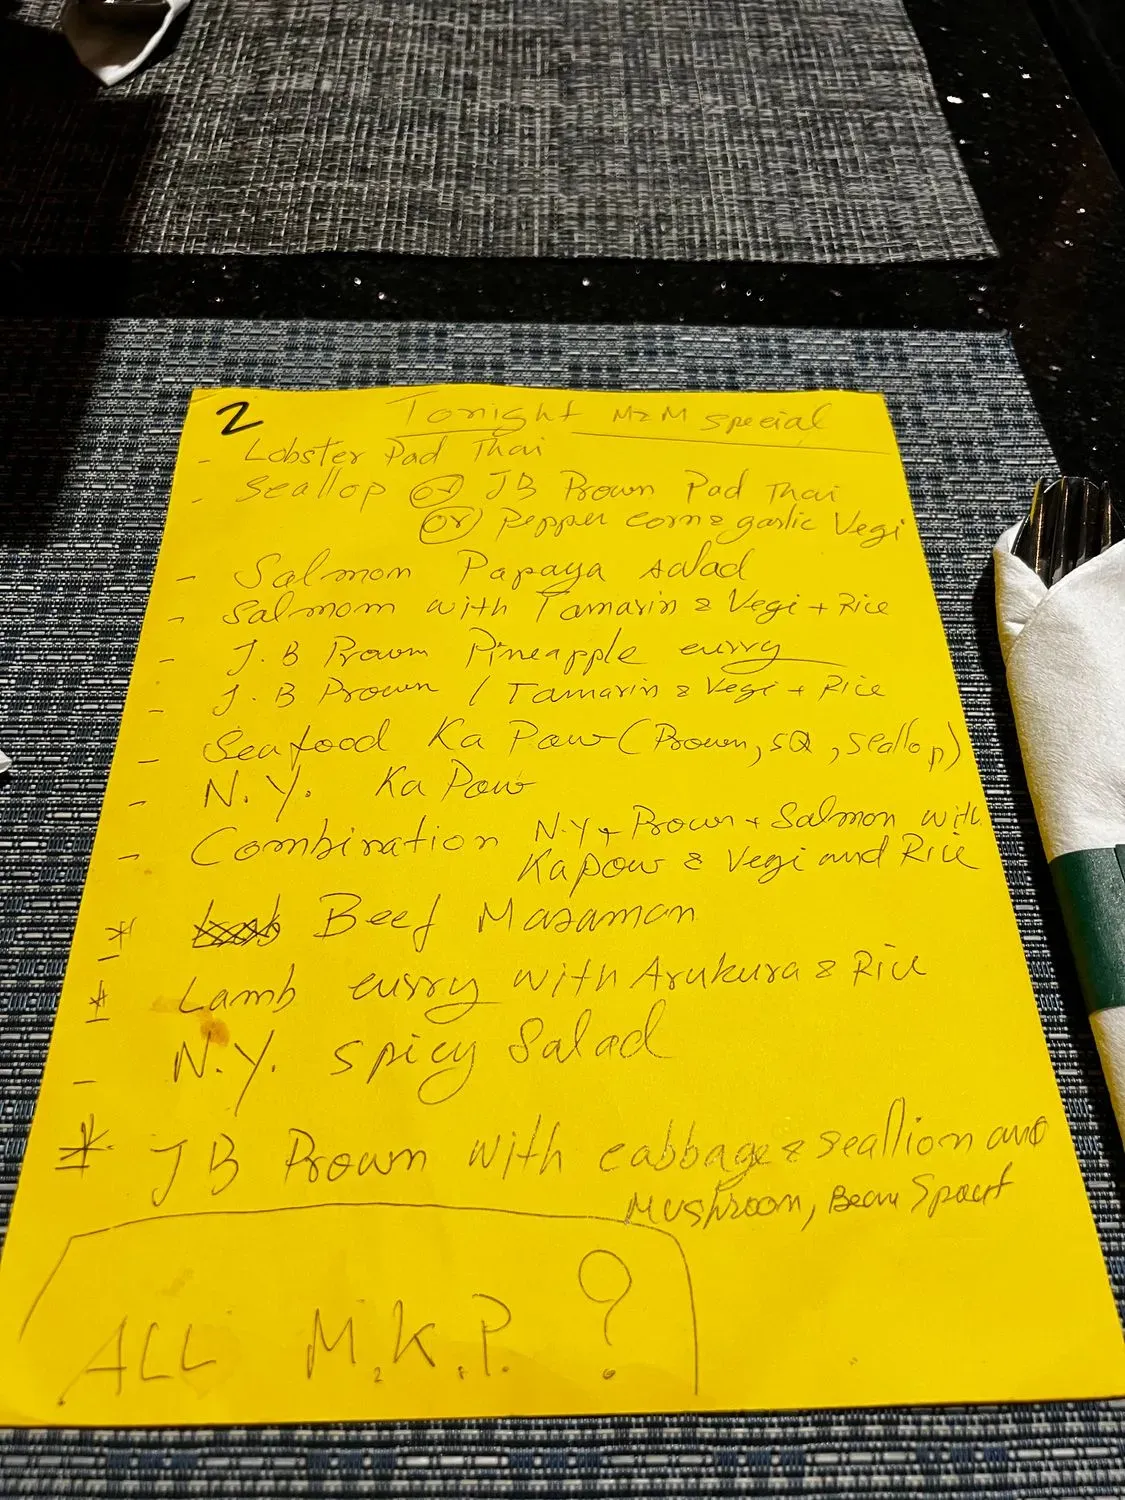 2
Tonight M&M special
- Lobster Pad Thai
- Scallop or JB Prown Pad Thai
or Pepper corn & garlic Vegi
- Salmon Papaya salad
- Salmon with Tamarin & Vegi + Rice
- J.B Prown Pineapple curry
- J.B Prown / Tamarin & Vegi + Rice
- Seafood Ka Pow (Prown, SQ, scallop)
- N.Y. Ka Pow
- Combination N.Y + Prown + Salmon with
Kapow & Vegi and Rice
* Beef Masaman
* Lamb curry with Arukura & Rice
- N.Y. spicy Salad
* JB Prown with cabbage & scallion and
Mushroom, Bean Spout
ALL M.K.P. ?